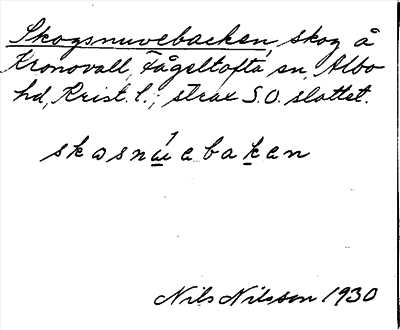 Skogsnuvebacken, skog å
Kronovall, Fågeltofta sn, Albo
hd, Krist. l.; strax S.O. slottet.
skasnu̲e ba k̲en
Nils Nilsson 1930